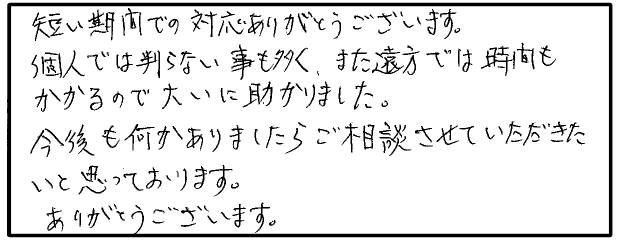 短い期間での対応ありがとうございます。
個人では判らない事も多く、また遠方では時間も
かかるので大いに助かりました。
今後も何かありましたらご相談させていただきた
いと思っております。
ありがとうございます。